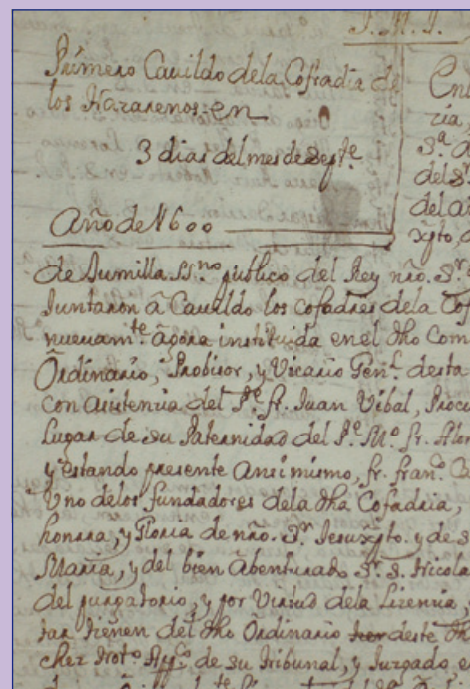 J. M. J.
Primero Cauildo dela Cofradia de
los Nazarenos en
3 dias del mes de Septe.
Año de 1600
En
ria
Sª
del Sr
del a
xpto,
de Jumilla Ssno público del Rey nro. Sr.
Juntaron â Cauildo los cofadres dela Cof
nueuamte agora instituida en el dho Com
Ordinario, Probisor, y Vicario Genl. desta
con asistencia del Pe. fr. Juan Vibal, Procu
Lugar de su Paternidad del Pe. Mo. fr. Alon
y estando presente Ansimismo, fr. franco.
Vno delos fundadores dela dha Cofadria,
honrra, y Gloria de nro. Sr. Jesuxpto. y de s
Maria, y del bien Abenturado Sr. S. Nicola
del purgatorio, y por Virtud dela Lizencia,
tienen del dho Ordinario deste
de su tribunal, y Juzgado e